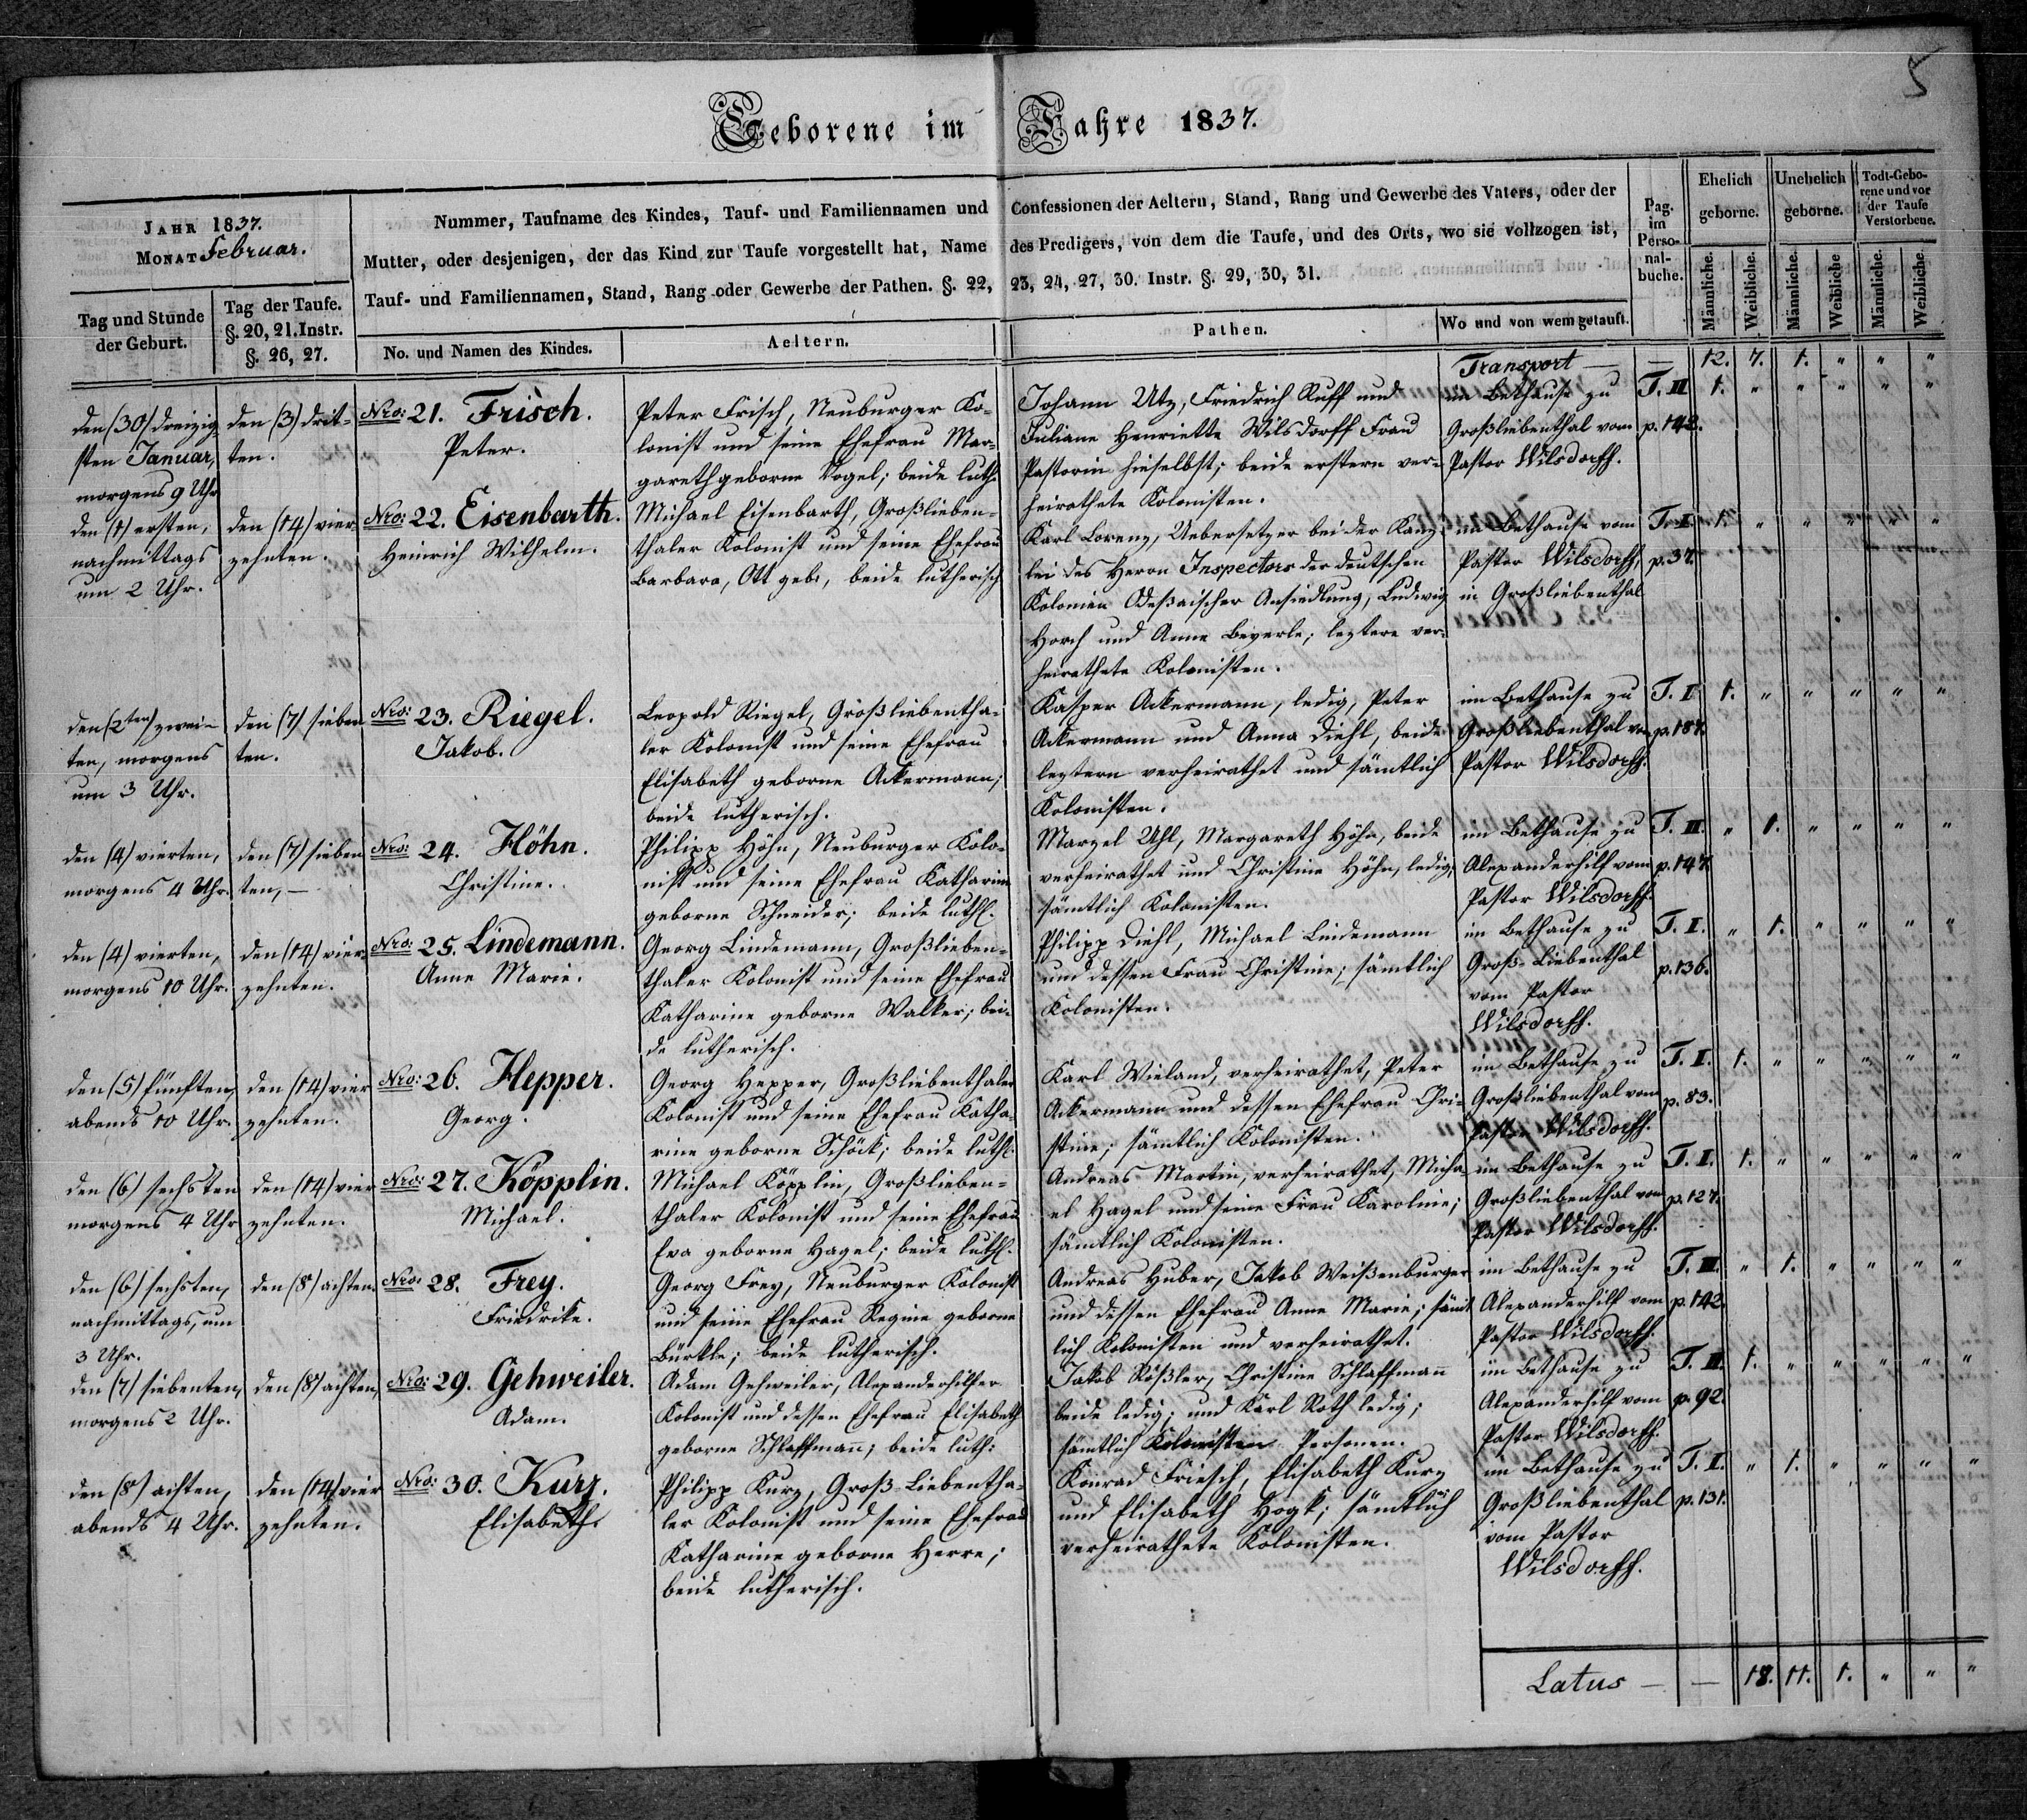 5
Geborene im Jahre 1837.
JAHR 1837.
MONAT Februar.
Tag und Stunde
der Geburt.
Tag der Taufe.
§. 20, 21. Instr.
§. 26, 27.
Nummer, Taufname des Kindes, Tauf- und Familiennamen und Confessionen der Aeltern, Stand, Rang und Gewerbe des Vaters, oder der
Mutter, oder desjenigen, der das Kind zur Taufe vorgestellt hat, Name des Predigers, von dem die Taufe, und des Orts, wo sie vollzogen ist,
Tauf- und Familiennamen, Stand, Rang oder Gewerbe der Pathen. §. 22, 23, 24, 27, 30. Instr. §. 29, 30, 31.
No. und Namen des Kindes.
Aeltern.
Pathen.
Wo und von wem getauft.
Pag.
im
Perso-
nal-
buche.
Ehelich
geborne.
Unehelich
geborne.
Todt-Gebo-
rene und vor
der Taufe
Verstorbene.
Männliche.
Weibliche.
Männliche.
Weibliche
Männliche.
Weibliche.
Transport — — 12. 7. 1. " " "
den (30) dreizig-
sten Januar,
morgens 9 Uhr
den (3) drit-
ten.
Nro: 21. Frisch.
Peter.
Peter Frisch, Neuburger Ko-
lonist und seine Ehefrau Mar-
gareth geborne Vogel; beide luth:
Johann Utz, Friedrich Ruff und
Juliane Henriette Wilsdorff Frau
Pastorin hieselbst; beide erstern ver-
heirathete Kolonisten.
im Bethause zu
Großliebenthal vom
Pastor Wilsdorff.
T. III
p. 142.
1. " " " " "
den (1) ersten,
nachmittags
um 2 Uhr.
den (14) vier-
zehnten.
Nro: 22. Eisenbarth.
Heinrich Wilhelm.
Michael Eisenbarth, Großlieben-
thaler Kolonist und seine Ehefrau
Barbara, Ott geb:, beide lutherisch
Karl Lorenz, Uebersetzer bei der Kanz-
lei des Herrn Inspectors der deutschen
Kolonien Odeßaischer Ansiedlung, Ludwig
Horch und Anna Beyerle; leztere ver-
heirathete Kolonisten.
im Bethause vom
Pastor Wilsdorff,
in Großliebenthal
T. I.
p. 37.
1. " " " " "
den (2ten) zwei-
ten, morgens
um 3 Uhr.
den (7) sieben-
ten.
Nro: 23. Riegel.
Jakob.
Leopold Riegel, Großliebentha-
ler Kolonist und seine Ehefrau
Elisabeth geborne Ackermann;
beide lutherisch.
Kasper Ackermann, ledig, Peter
Ackermann und Anna Diehl, beide
leztern verheirathet und sämtlich
Kolonisten.
im Bethause zu
Großliebenthal vom
Pastor Wilsdorff.
T. I.
p. 187.
1. " " " " "
den (4) vierten,
morgens 4 Uhr.
den (7) sieben-
ten, —
Nro: 24. Höhn.
Christine.
Philipp Höhn, Neuburger Kolo-
nist und seine Ehefrau Katharine
geborne Schneider; beide luth.
Marzel Uhl, Margareth Höhn, beide
verheirathet und Christine Höhn, ledig;
sämtlich Kolonisten.
im Bethause zu
Alexanderhilf vom
Pastor Wilsdorff.
T. III.
p. 147.
" 1. " " " "
den (4) vierten,
morgens 10 Uhr.
den (14) vier-
zehnten.
Nro: 25. Lindemann.
Anne Marie.
Georg Lindemann, Großlieben-
thaler Kolonist und seine Ehefrau
Katharine geborne Walker; bei-
de lutherisch.
Philipp Diehl, Michael Lindemann
und dessen Frau Christine; sämtlich
Kolonisten.
im Bethause zu
Groß-Liebenthal
vom Pastor
Wilsdorff.
T. I.
p. 136.
" 1. " " " "
den (5) fünften
abends 10 Uhr.
den (14) vier-
zehnten.
Nro: 26. Hepper.
Georg.
Georg Hepper, Großliebenthaler
Kolonist und seine Ehefrau Katha-
rine geborne Schöck; beide luth.
Karl Wieland, verheirathet, Peter
Ackermann und dessen Ehefrau Chri-
stine; sämtlich Kolonisten.
im Bethause zu
Großliebenthal vom
Pastor Wilsdorff.
T. I.
p. 83.
1. " " " " "
den (6) sechsten
morgens 4 Uhr
den (14) vier-
zehnten.
Nro: 27. Köpplin.
Michael.
Michael Köpplin, Großlieben-
thaler Kolonist und seine Ehefrau
Eva geborne Hagel; beide luth.
Andreas Martin, verheirathet, Micha-
el Hagel und seine Frau Karoline;
sämtlich Kolonisten.
im Bethause zu
Großliebenthal vom
Pastor Wilsdorff.
T. I.
p. 127.
1. " " " " "
den (6) sechsten,
nachmittags, um
3 Uhr.
den (8) achten.
Nro: 28. Frey.
Friedrike.
Georg Frey, Neuburger Kolonist
und seine Ehefrau Regine geborne
Bürkle; beide lutherisch.
Andreas Huber, Jakob Weißenburger
und dessen Ehefrau Anne Marie; sämt-
lich Kolonisten und verheirathet.
im Bethause zu
Alexanderhilf vom
Pastor Wilsdorff.
T. III.
p. 142.
" 1. " " " "
den (7) siebenten,
morgens 2 Uhr.
den (8) achten,
Nro: 29. Gehweiler.
Adam.
Adam Gehweiler, Alexanderhilfer
Kolonist und dessen Ehefrau Elisabeth
geborne Schlaffmann; beide luth:
Jakob Rößler, Christine Schlaffmann
beide ledig; und Karl Roth ledig;
sämtlich Kolonisten Personen.
im Bethause zu
Alexanderhilf vom
Pastor Wilsdorff.
T. II.
p. 92.
1. " " " " "
den (8) achten,
abends 4 Uhr.
den (14) vier-
zehnten.
Nro: 30. Kurz.
Elisabeth.
Philipp Kurz, Groß-Liebentha-
ler Kolonist und seine Ehefrau
Katharine geborne Herre;
beide lutherisch.
Konrad Friesch, Elisabeth Kurz
und Elisabeth Hogk; sämtlich
verheirathete Kolonisten.
im Bethause zu
Großliebenthal
vom Pastor
Wilsdorff.
T. I.
p. 131.
" 1. " " " "
Latus — — 18. 11. 1. " " "